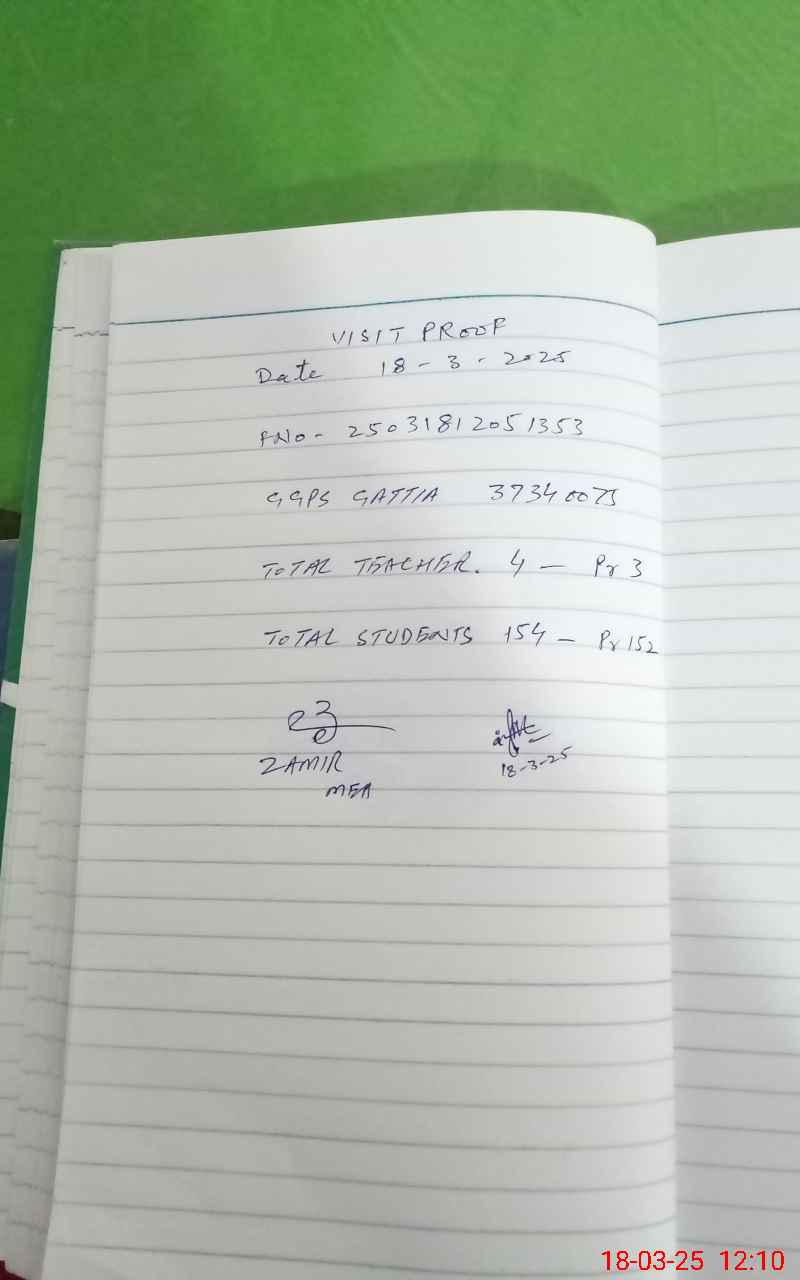 VISIT PROOF
Date 18-3-2025
FNo- 25031812051353
GGPS GATTIA 37340075
TOTAL TEACHER. 4 — Pr 3
TOTAL STUDENTS 154 — Pr 152
ZAMIR
MEA
18-3-25
18-03-25 12:10